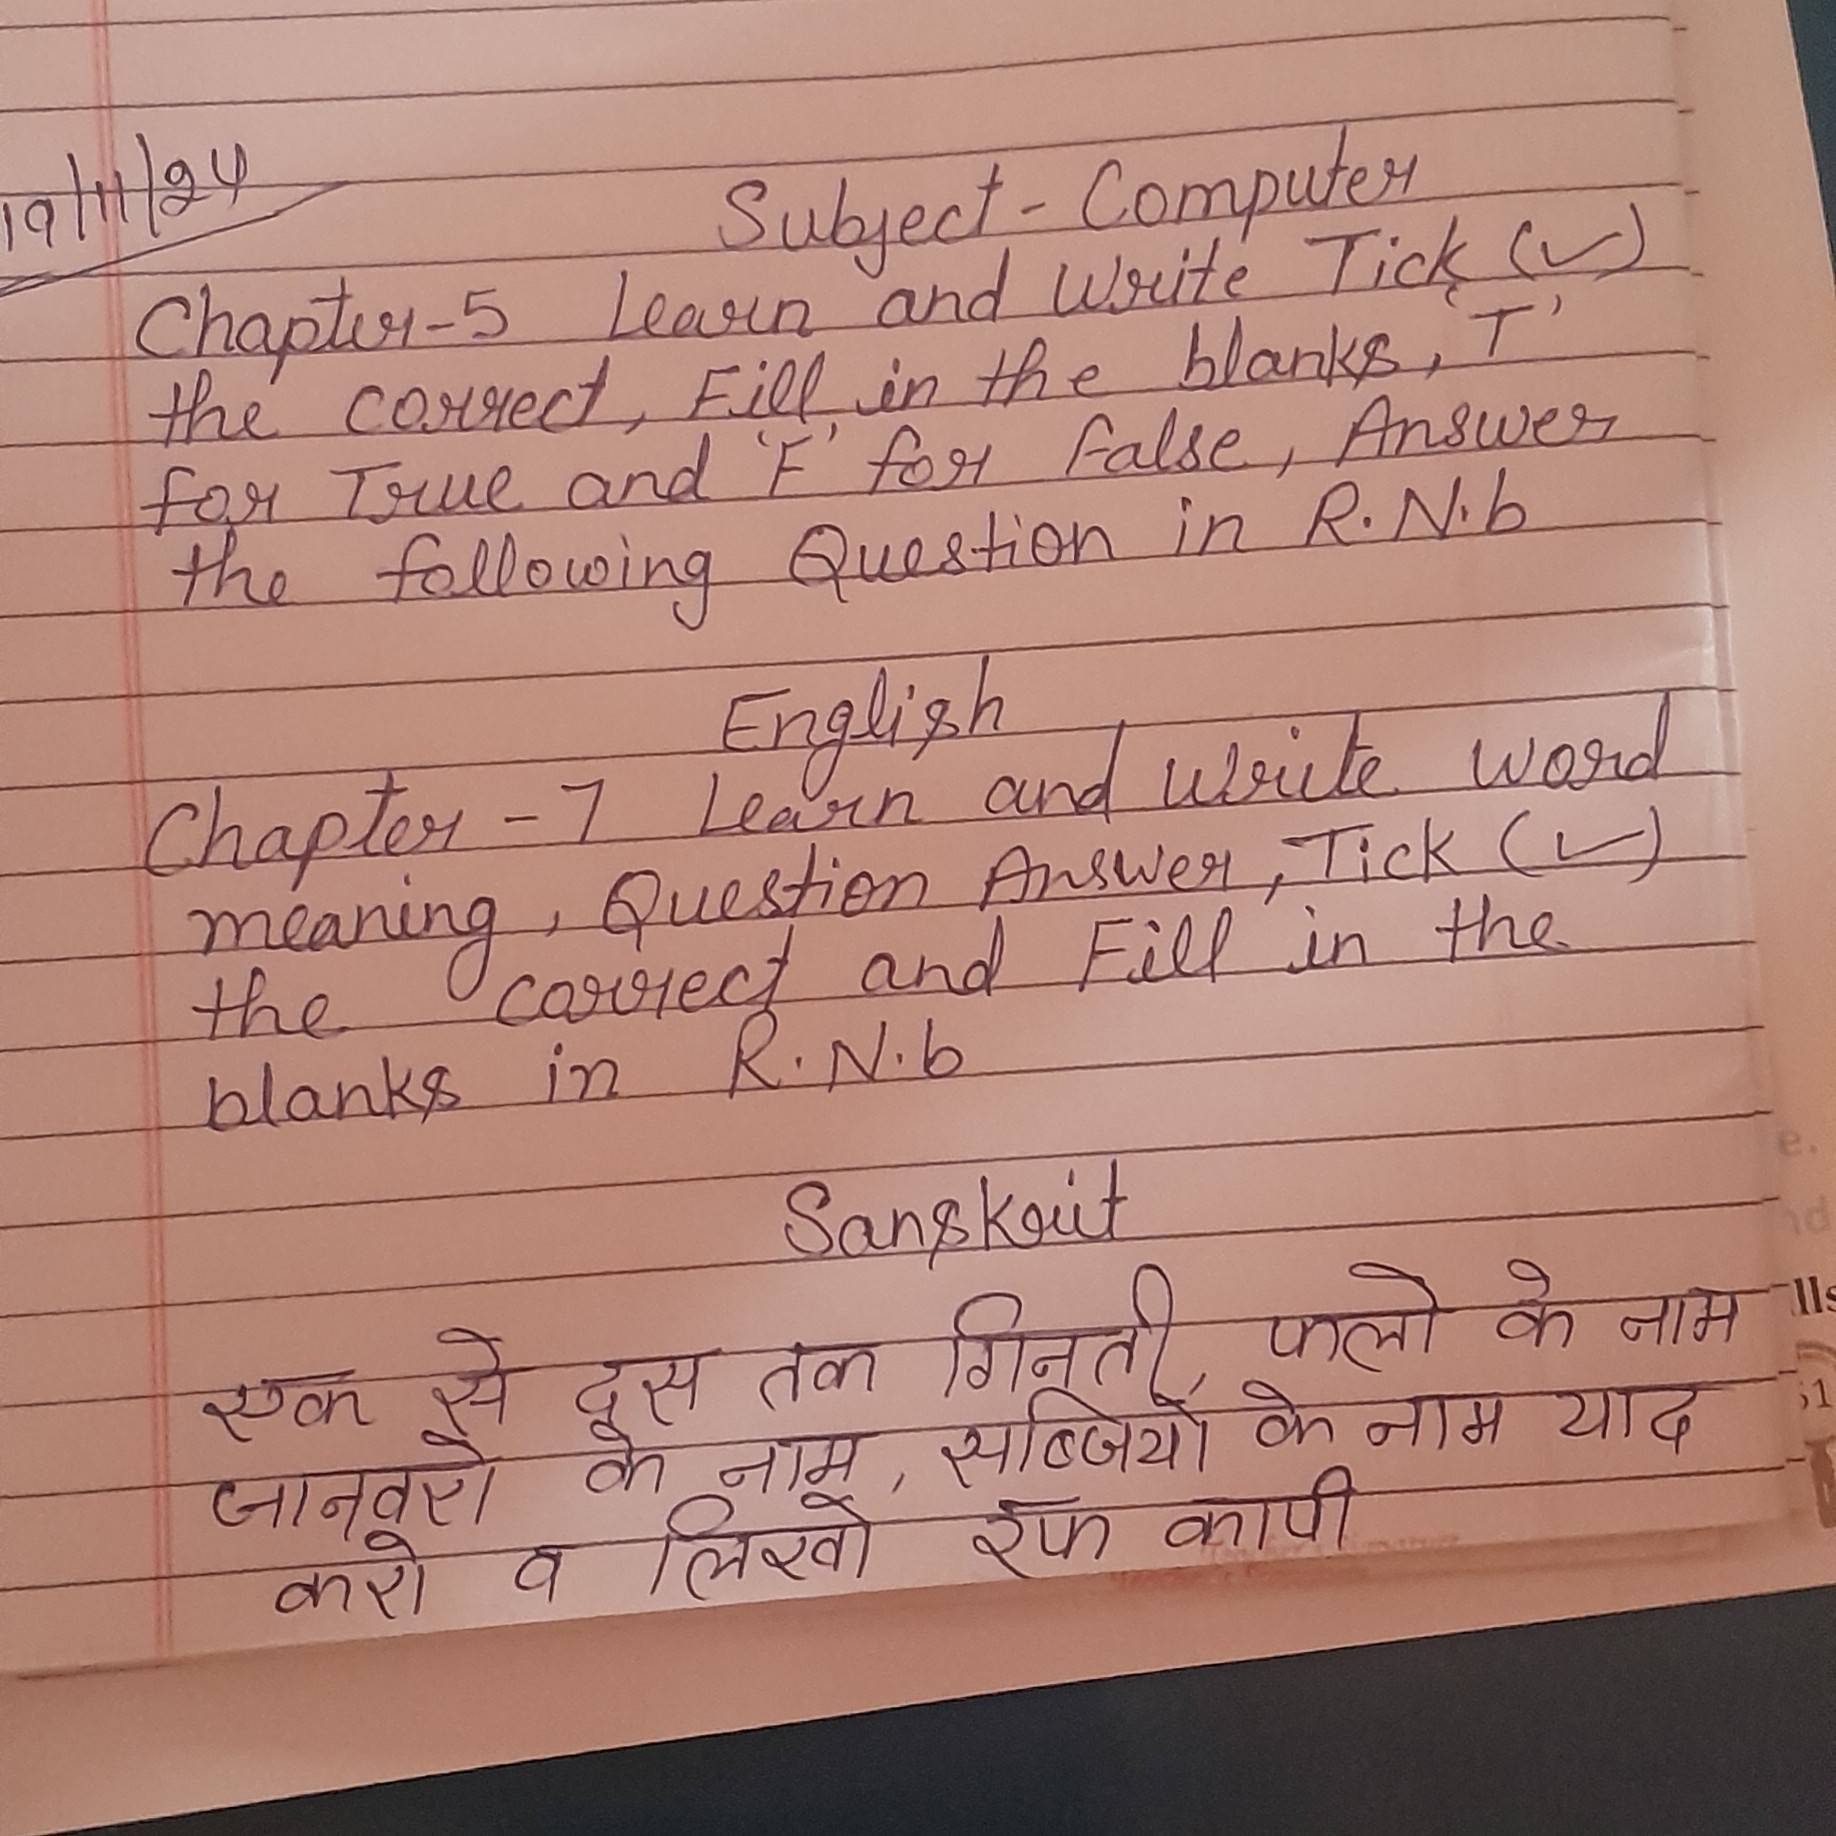 19/11/24
Subject - Computer
Chapter-5 Learn and Write Tick (✓)
the correct, Fill in the blanks, 'T'
for True and 'F' for False, Answer
the following Question in R.N.b
English
Chapter - 7 Learn and Write word
meaning, Question Answer, Tick (✓)
the correct and Fill in the
blanks in R.N.b
Sanskrit
एक से दस तक गिनती, फलो के नाम
जानवरो के नाम, सब्जियो के नाम याद
करो व लिखो रफ कापी